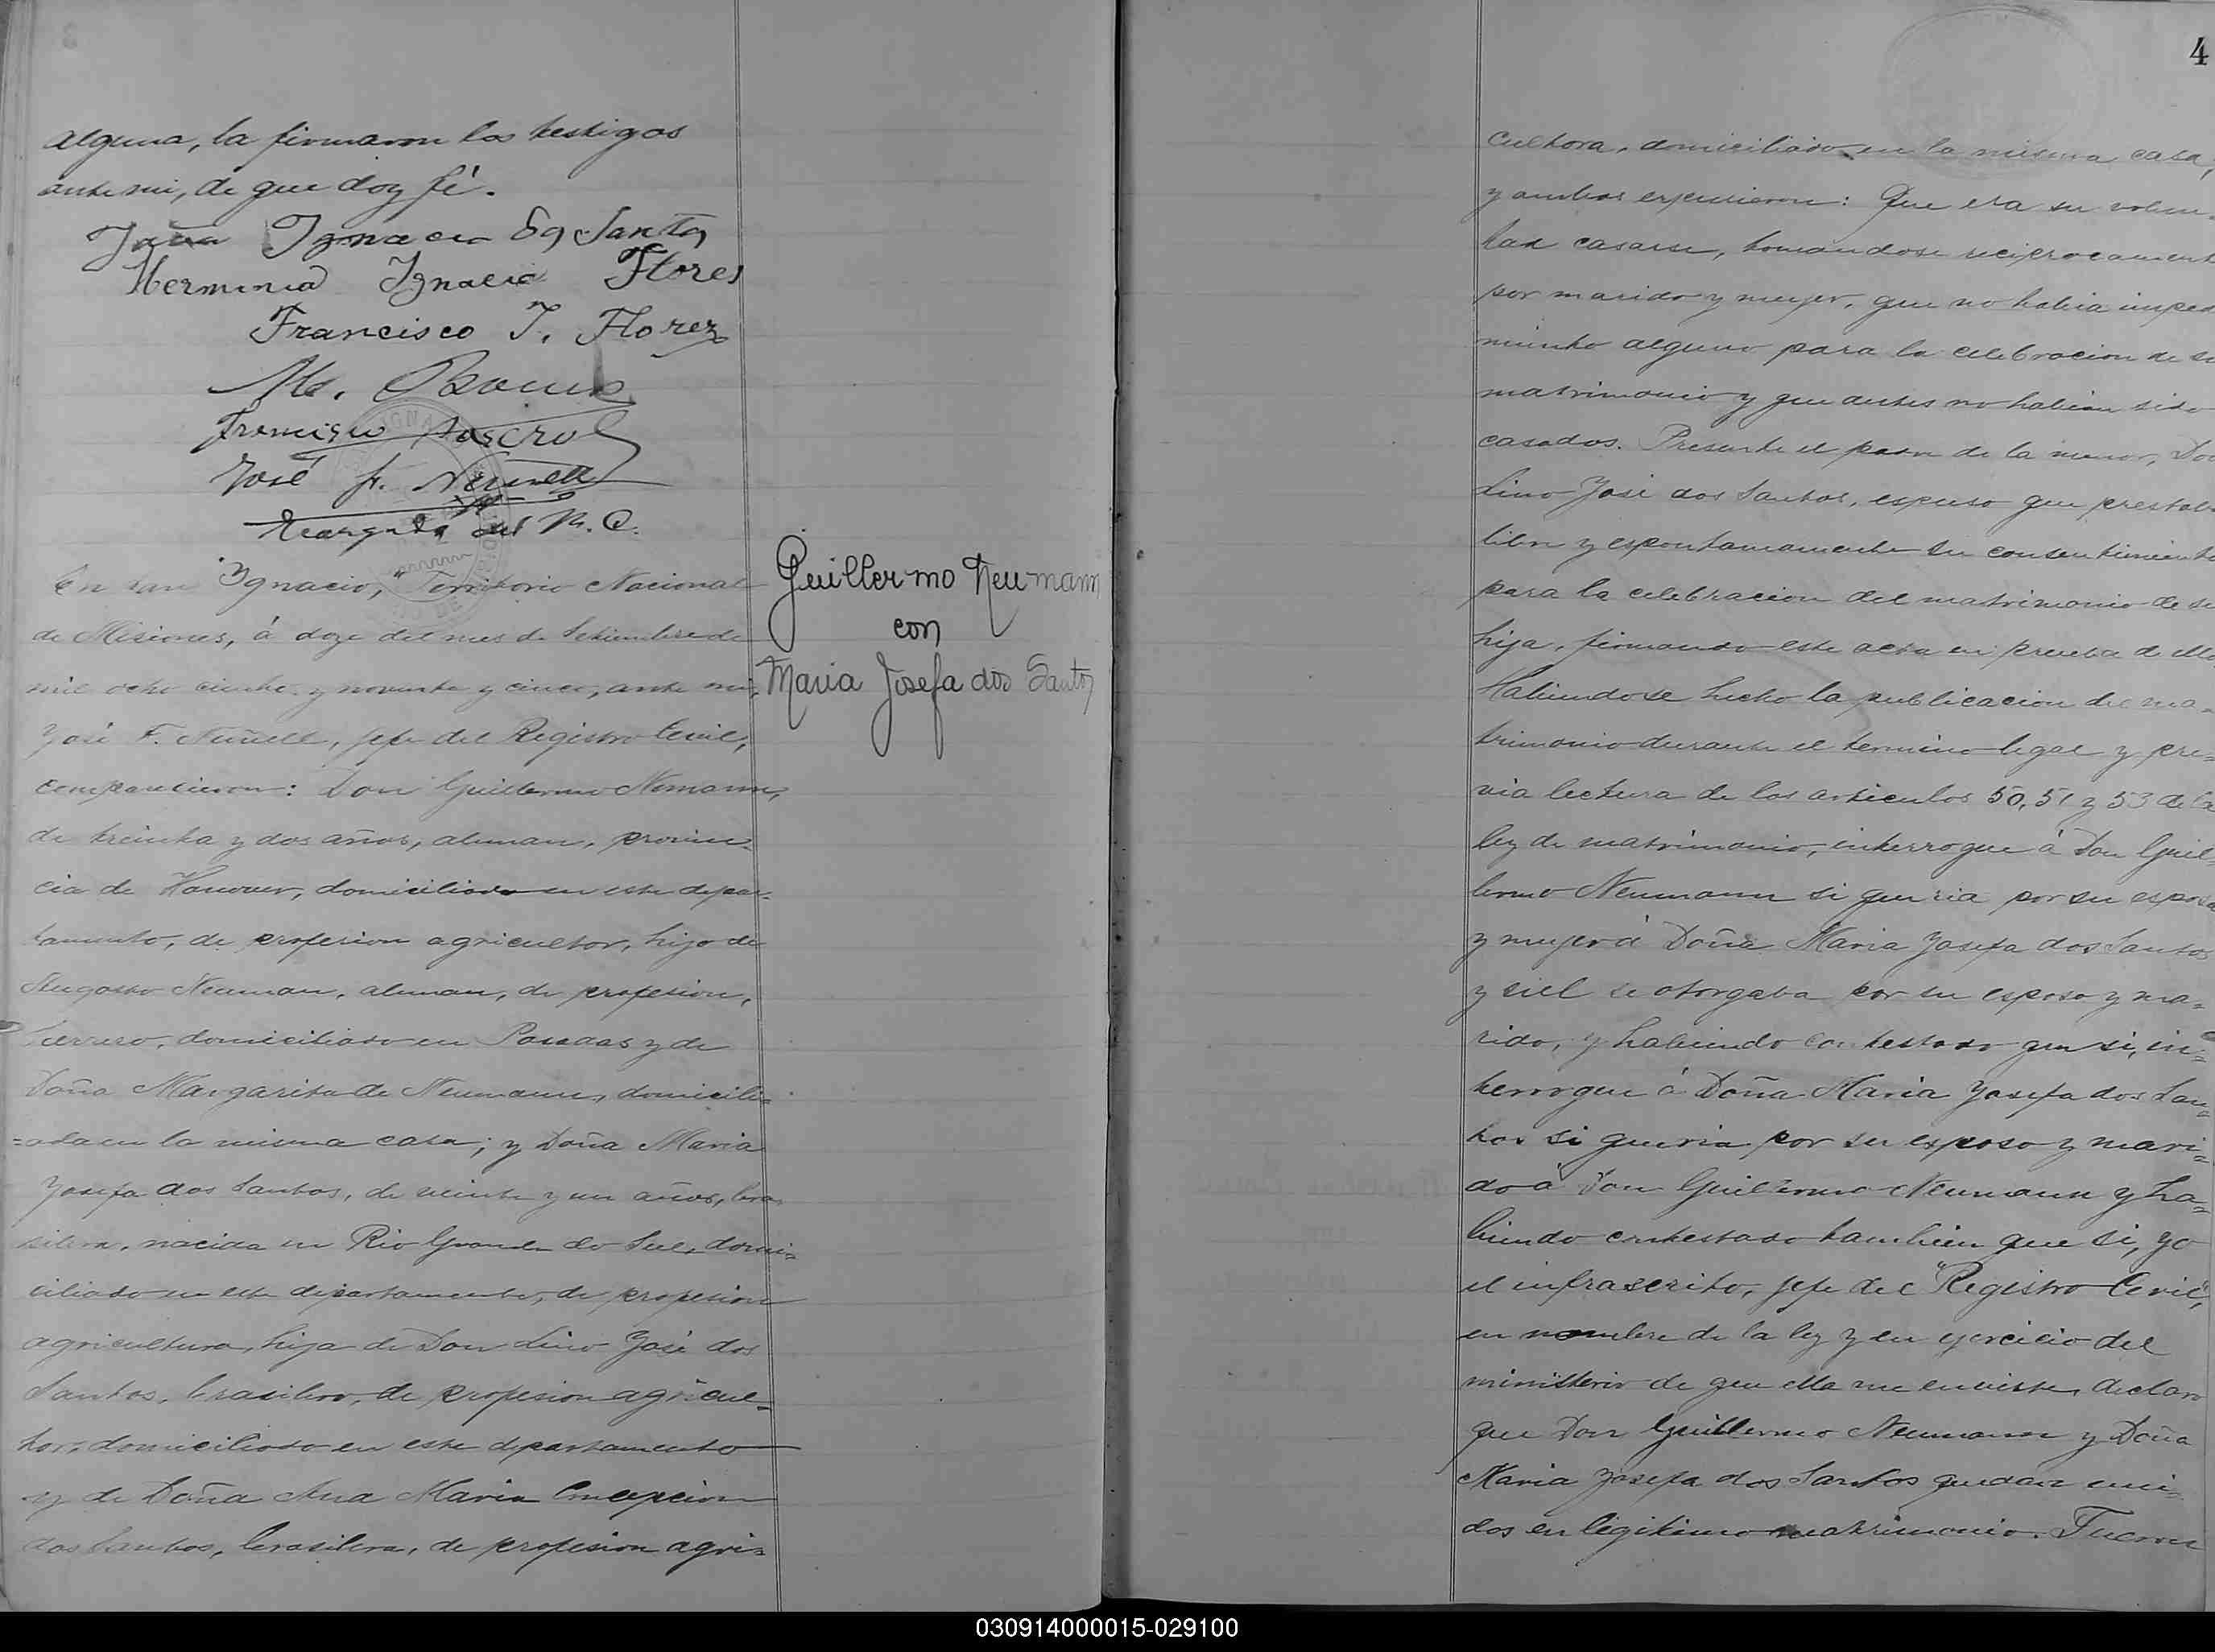 alguna, la firmaron los testigos
ante mi, de que doy fé.
Ignacio Santos
Herminia Ignacio Flores
Francisco I. Florez
M.
Francisco
José F. Nuñell
Encargado del R. C.
En San Ygnacio, Territorio Nacional
de Misiones, á doze del mes de Setiembre de
mil ocho ciento y noventa y cinco, ante mi,
José F. Nuñell, jefe del Registro Civil,
comparecieron: Don Guillermo Nemann,
de treinta y dos años, aleman, provin-
cia de Hanover, domiciliado en este depar-
tamento, de profesion agricultor, hijo de
Augosto Neuman, aleman, de profesion,
herrero, domiciliado en Posadas y de
Doña Margarita de Neumann, domicili=
=ada en la misma casa; y Doña Maria
Josefa dos Santos, de veinte y un años, bra-
silera, nacida en Rio Grande do Sul, domi=
ciliado en este departamento, de profesion
agricultura, hija de Don Lino José dos
Santos, brasilero, de profesion agricul=
tor, domiciliado en este departamento
y de Doña Ana Maria Concepcion
dos Santos, brasilera, de profesion agri=
Guillermo Neumann
con
Maria Josefa dos Santos
4
cultora, domiciliado en la misma casa,
y ambos expusieron: Que era su volun-
tad casarse, tomandose reciprocament
por marido y mujer, que no habia imped
mento alguno para la celebracion de su
matrimonio y que antes no habian sido
casados. Presente el padre de la menor, Don
Lino José dos Santos, espuso que prestaba
libre y espontaneamente su consentimiento
para la celebracion del matrimonio de su
hija, firmando este acta en prueba de ello
Habiendose hecho la publicacion del ma-
trimonio durante el termino legal y pre=
via lectura de los articulos 50, 51 y 53 de la
ley de matrimonio, interrogue á Don Guil=
lermo Neumann si queria por su esposa
y mujer á Doña Maria Josefa dos Santos
y si el se otorgaba por su esposo y ma=
rido, y habiendo contestado que si, in=
terrogue á Doña Maria Josefa dos San=
tos si queria por su esposo y mari=
do á Don Guillermo Neumann y ha=
biendo contestado tambien que si, yo
el infrascrito, jefe del "Registro Civil",
en nombre de la ley y en ejercicio del
ministterio de que ella me enviste, declaro
que Don Guillermo Neumann y Doña
Maria Josefa dos Santos quedan uni=
dos en legitimo matrimonio. Fueron
030914000015-029100